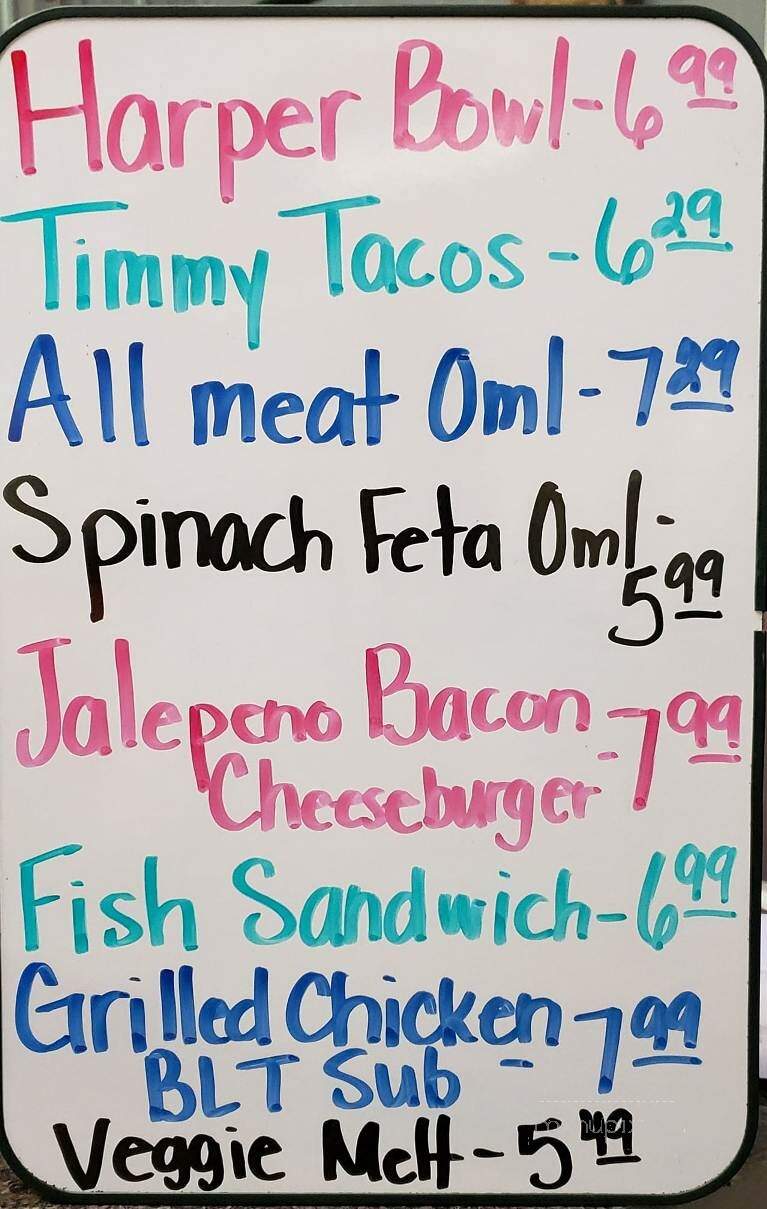 Harper Bowl-6 99
Timmy Tacos-6 29
All meat Oml-7 29
Spinach Feta Oml-
5 99
Jalepeno Bacon-7 99
Cheeseburger
Fish Sandwich-6 99
Grilled Chicken-7 99
BLT Sub
Veggie Melt-5 49